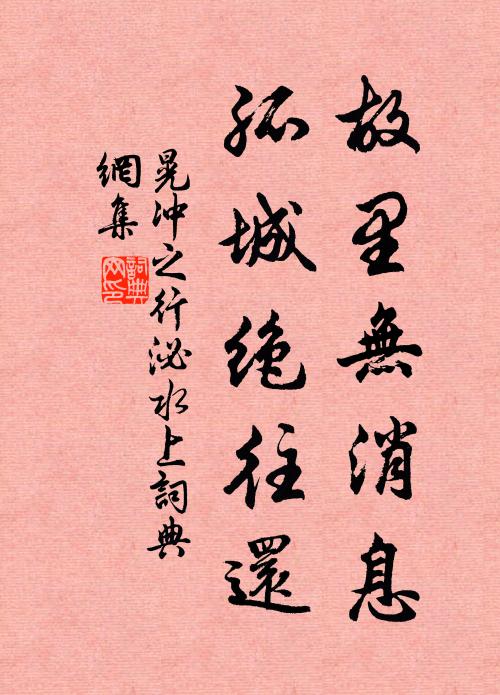 故里無消息
孤城絶往還
晁沖之行泌水上詞典
網集
詞典
网印